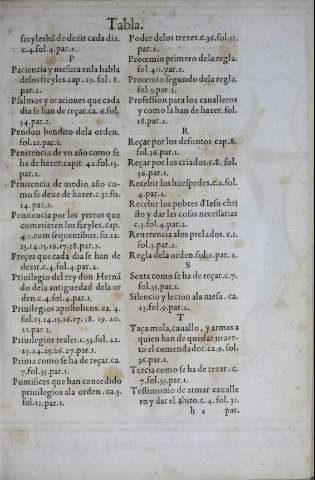 Tabla.
freyleshã de dezir cada dia.
c.4.fol.4.par.2.
P
Paciencia y mesura enla habla
delos freyles.cap.19.fol.8.
par.2.
Psalmos y oraciones que cada
dia se han de reçar.ca.6.fol.
34.par.1.
Pendon bendito dela orden.
fol.21.par.1.
Penitencia de vn año como se
ha de hazer.capit.42.fol.13.
par.2.
Penitencia de medio año co-
mo se deue de hazer.c.51.fo.
14.par.2.
Penitencia por los yerros que
cometieren los freyles.cap.
40.cum sequentibus.fo.12.
13.14.15.16.17.18.par.2.
Preçes que cada dia se han de
dezir.c.4.fol.4.par.2.
Priuilegio del rey don Hernã
do dela antiguedad dela or
den.c.4.fol.4.par.1.
Priuilegios apostolicos.ca.4.
fol.13.14.15.16.17.18.19.20.
21.par.1.
Priuilegios reales.c.33.fol.22.
23.24.25.26.27.par.1.
Prima como se ha de reçar.ca.
7.fol.35.par.1.
Pontifices que han concedido
priuilegios ala orden.ca.3.
fol.12.par.1.
Poder delos trezes.c.36.fol.51.
par.2.
Proemio primero dela regla.
fol 40.par.2.
Proemio segundo dela regla.
fol.3.par 2.
Profession para los caualleros
y como la han de hazer.fol.
18.par.2.
R
Reçar por los defuntos.cap.8.
fol.36.par.1.
Reçar por los criados.c.8. fol.
36.par.1.
Recebir los huespedes.c.2.fol.
4.par.2.
Recebir los pobres d Iesu chri
sto y dar las cosas necessarias
c.3.fol.4.par.2.
Reuerencia alos prelados.c.1.
fol.3.par.2.
Regla dela orden.fol.2.par.2.
S
Sexta como se ha de reçar.c.7.
fol.35.par.1.
Silencio y lecion ala mesa.ca.
23.fol.9.par.2.
T
Taça mula,cauallo, y armas a
quien han de quedar muer-
to el comendador.ca.9.fol.
36.par.1.
Tercia como se ha de rezar.c.
7.fol.35.par.1.
Testimonio de armar caualle
ro y dar el abito.c.4.fol.31.
h 2 par.